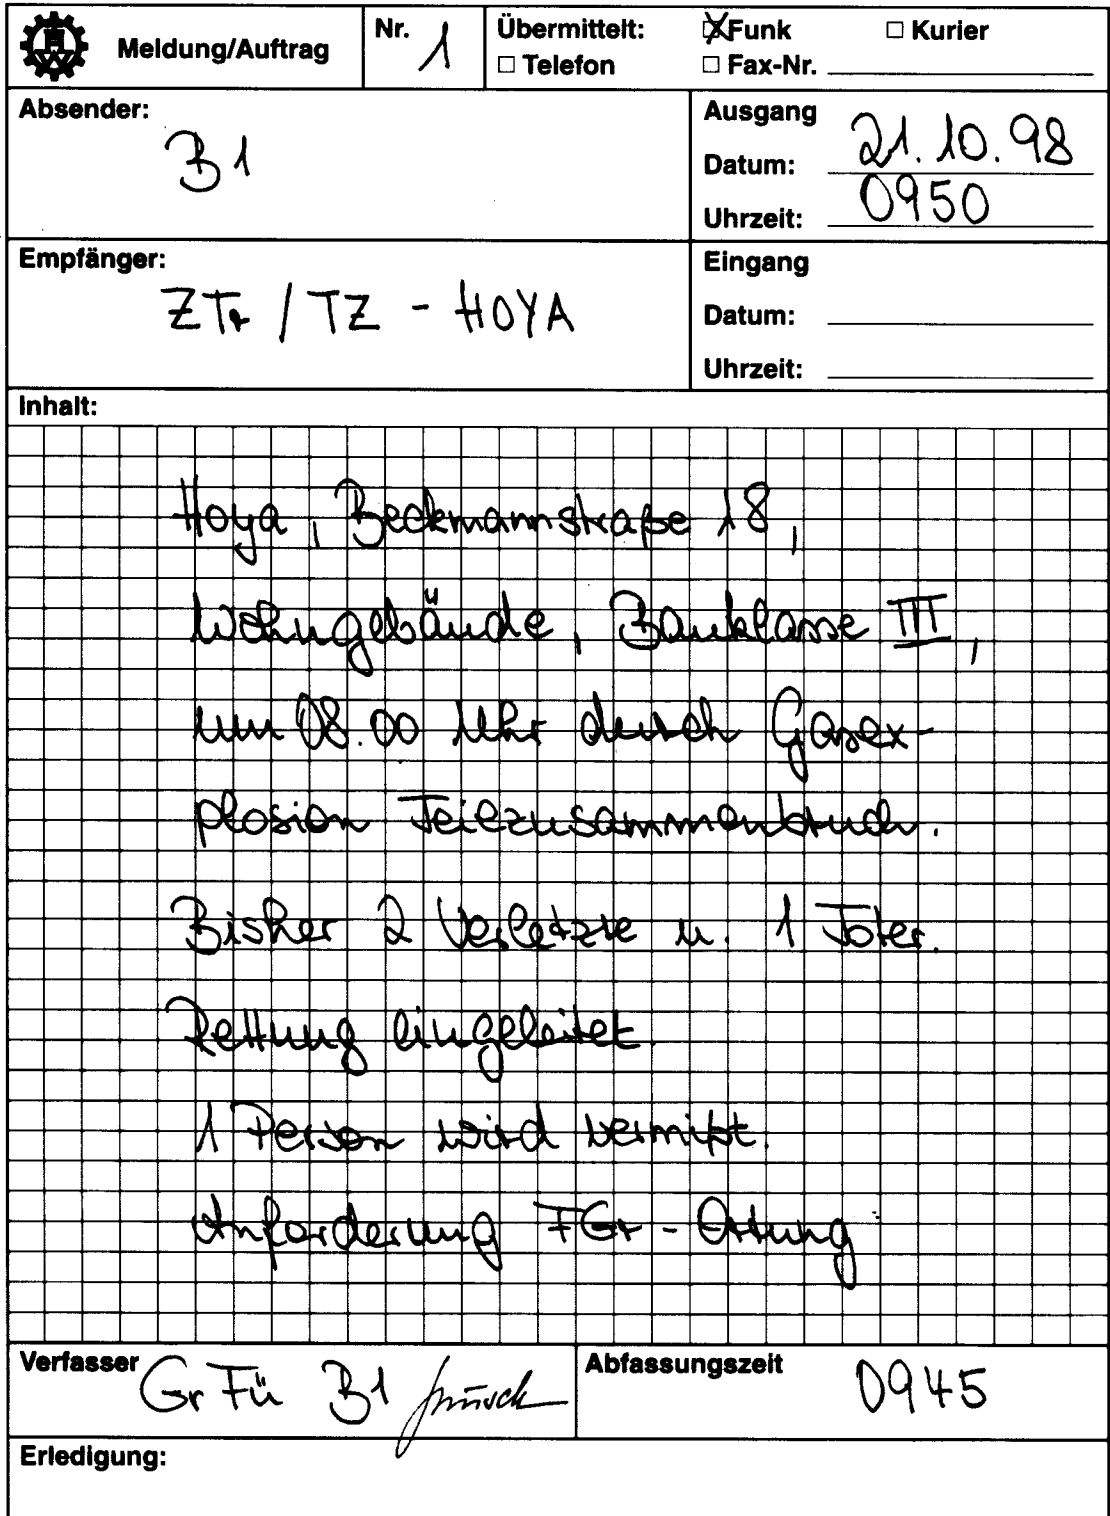 Meldung/Auftrag
Nr. 1
Übermittelt: Funk Kurier
Telefon Fax-Nr.
Absender:
B1
Ausgang
Datum: 21.10.98
Uhrzeit: 0950
Empfänger:
ZTr / TZ - HOYA
Eingang
Datum:
Uhrzeit:
Inhalt:
Hoya, Beckmannstraße 18,
Wohngebäude, Bauklasse III,
um 08.00 Uhr durch Gasex-
plosion Teilzusammenbruch.
Bisher 2 Verletzte u. 1 Toter.
Rettung eingeleitet.
1 Person wird vermißt.
Anforderung FGr - Ortung
Verfasser GrFü B1
Abfassungszeit 0945
Erledigung: